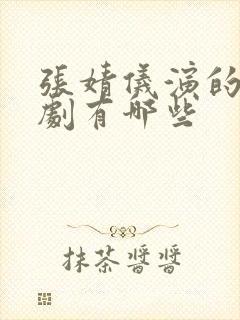 張婧儀演的
劇有哪些
抹茶醬醬